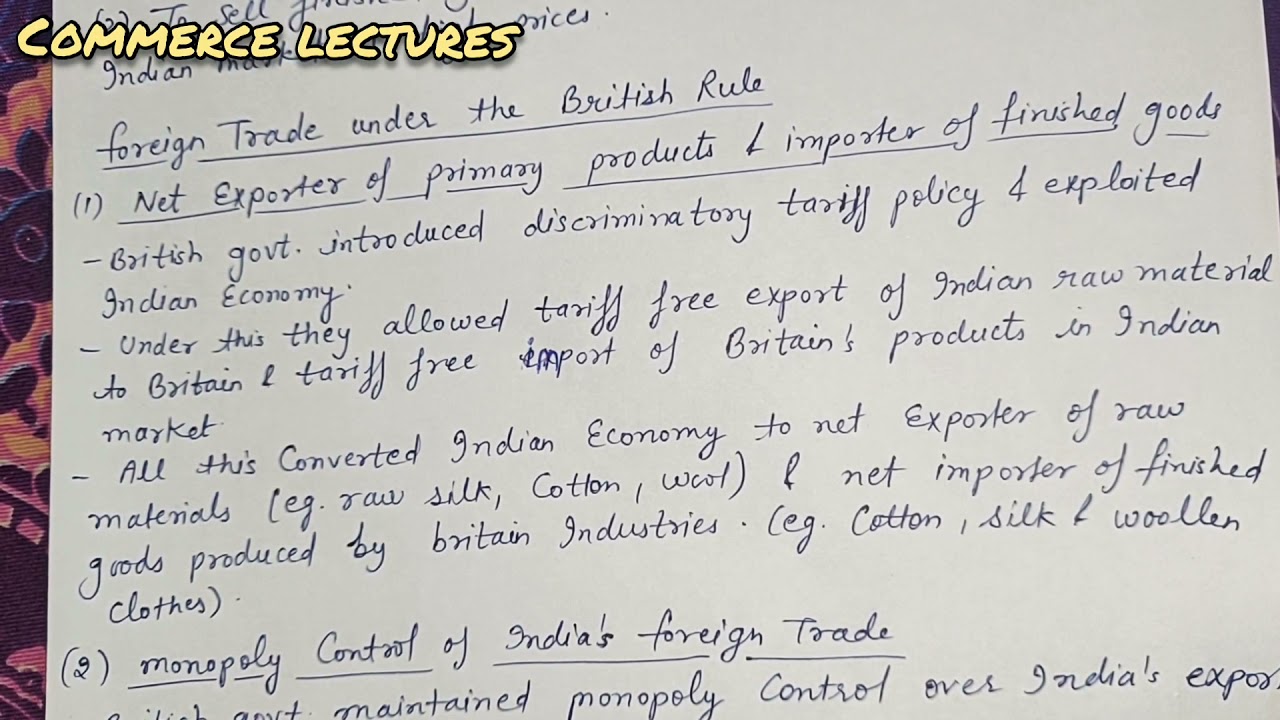 (2) To sell
COMMERCE LECTURES
Indian prices.
foreign Trade under the British Rule
(1) Net Exporter of primary products & importer of finished goods
- British govt. introduced discriminatory tariff policy & exploited
Indian Economy.
- Under this they allowed tariff free export of Indian raw material
to Britain & tariff free import of Britain's products in Indian
market.
- All this Converted Indian Economy to net Exporter of raw
materials (eg. raw silk, Cotton, wool) & net importer of finished
goods produced by britain Industries. (eg. Cotton, silk & woollen
clothes).
(2) monopoly Control of India's foreign Trade
govt. maintained monopoly Control over India's expor